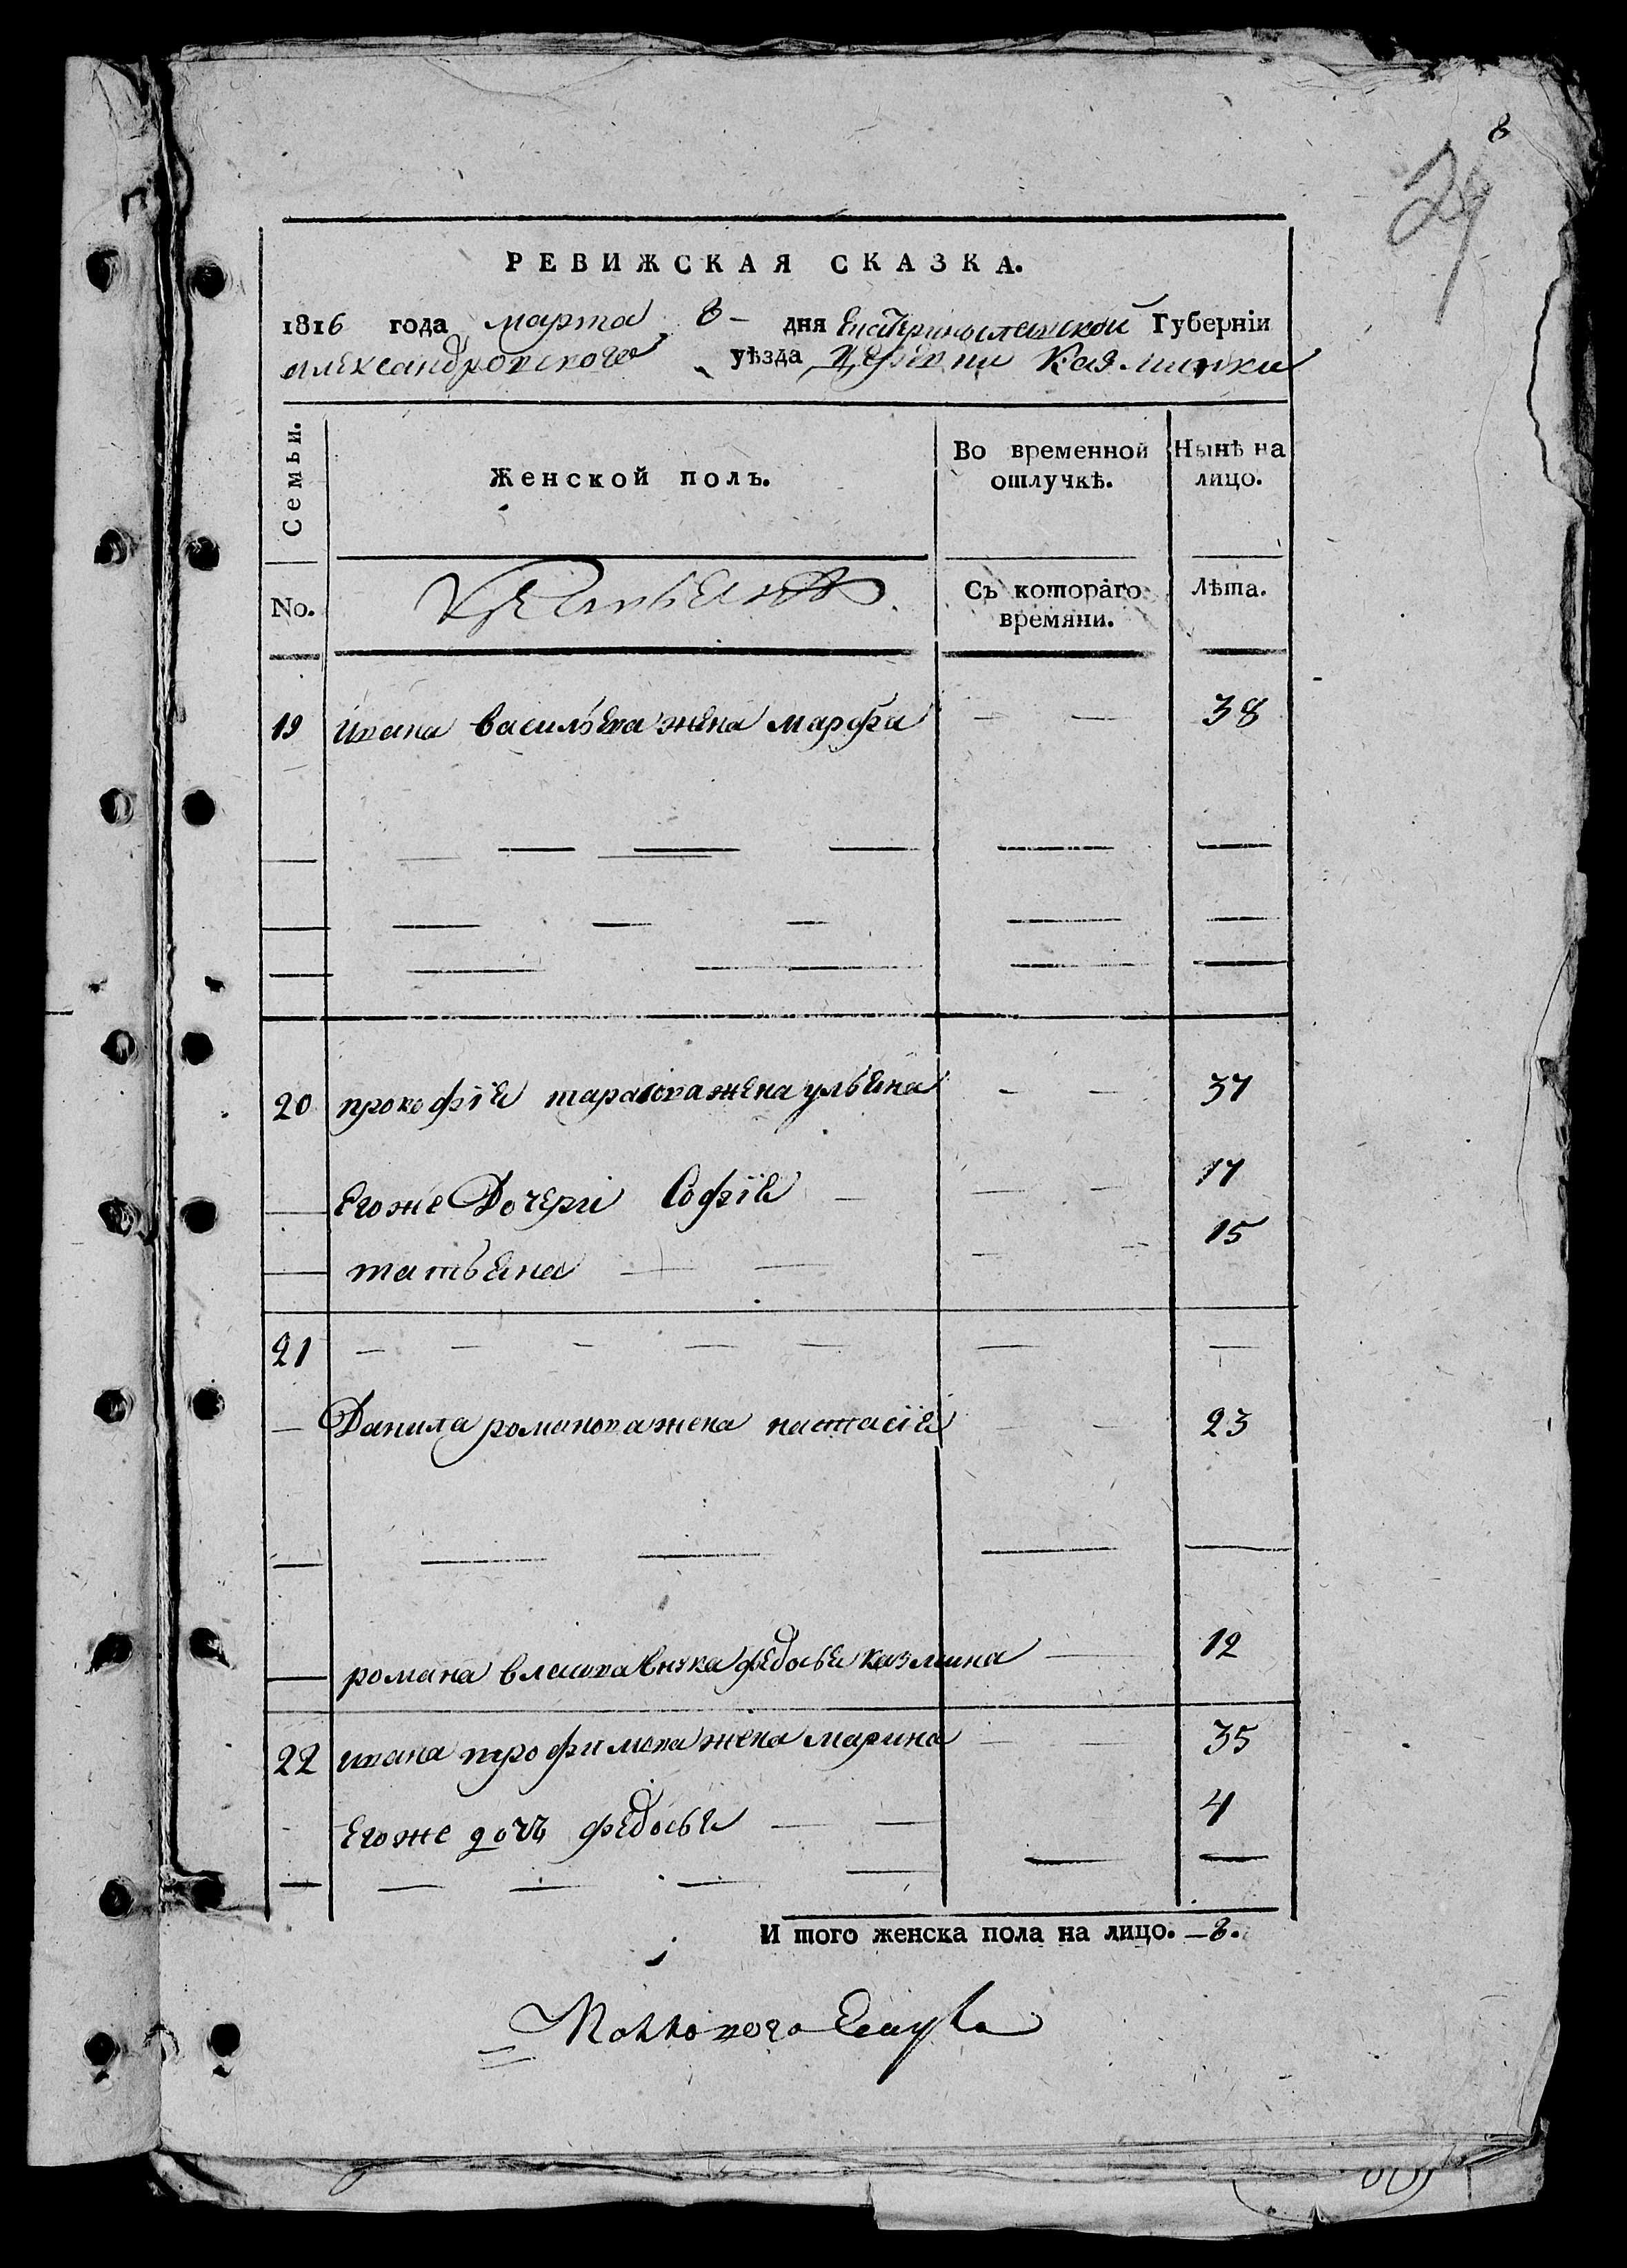 8
29
РЕВИЖСКАЯ СКАЗКА.
1816 года марта 8 – дня Екатеринославской Губерніи
александровского уѣзда деревни Казминки
Семьи.
Женской полъ.
Во временной отлучкѣ.
Нынѣ на лицо.
No.
Крестьянъ
Съ котораго времяни.
Лѣта.
19 ивана васильева жена марфа — — 38
20 прокофія тарасова жена ульяна — — 37
Егоже Дочери Софія — — — 17
татьяна — — — — 15
21 — — — — — — —
— Данила романова жена настасія — — 23
— романа власова внука федосья казмина — 12
22 ивана трофимова жена марина — — 35
Егоже дочь федосья — — 4
И того женска пола на лицо. — 8.